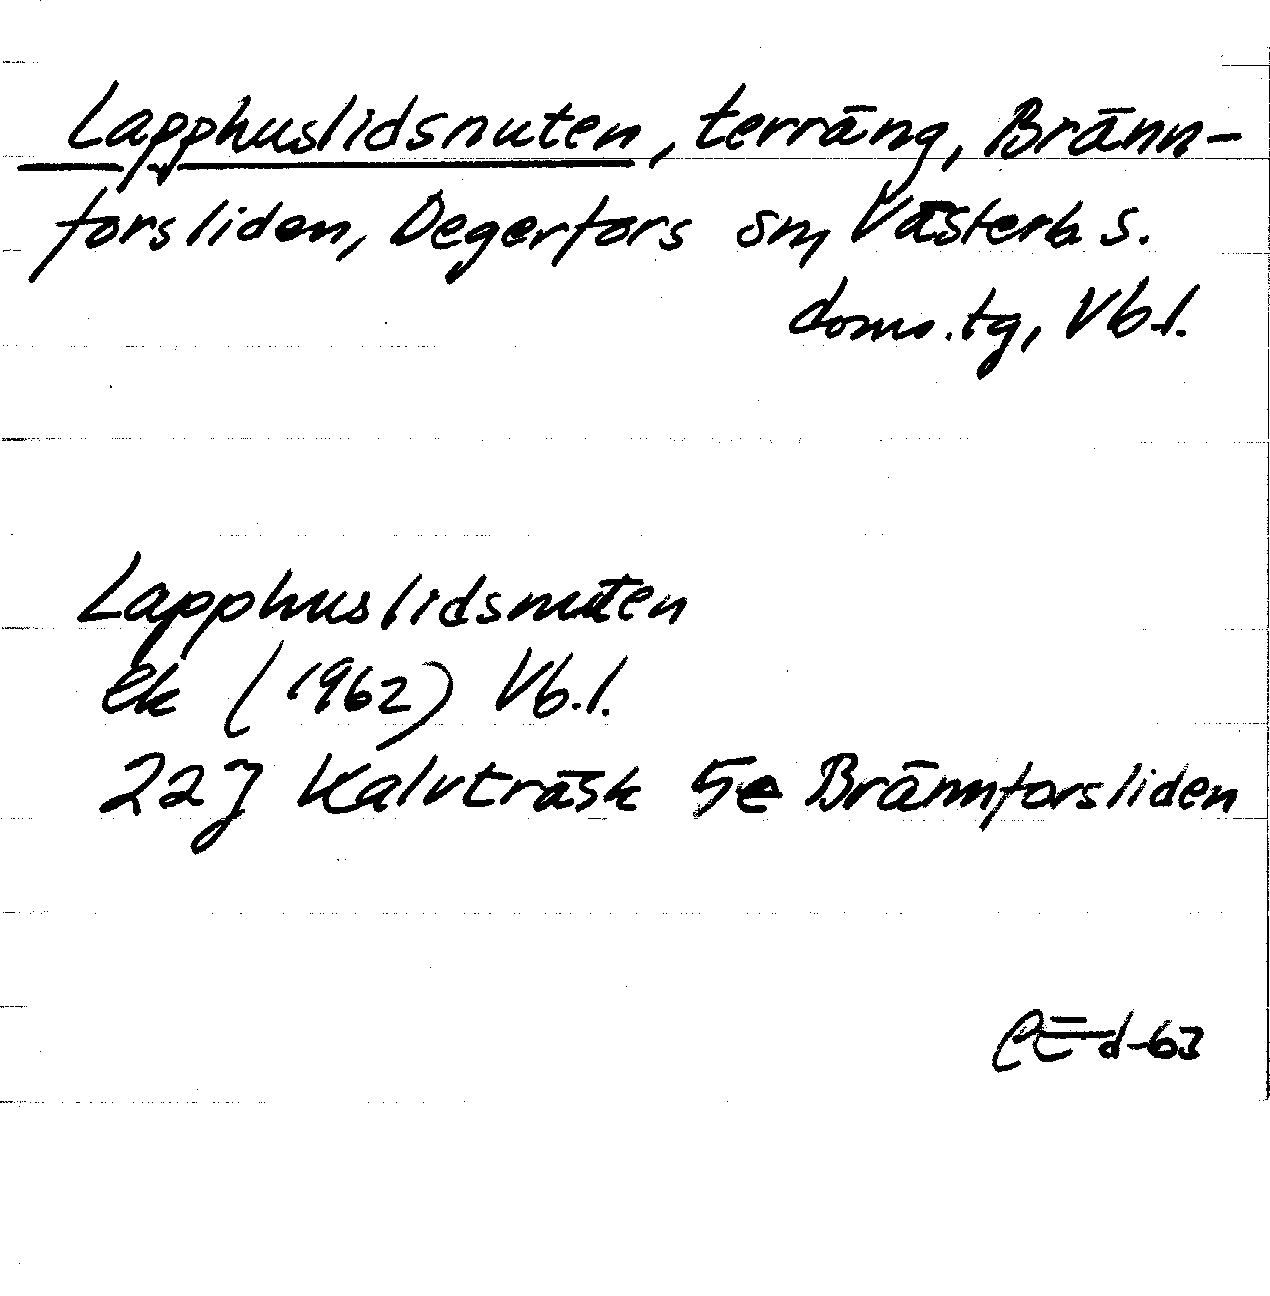 Lapphuslidsnuten, terräng, Bränn-
forsliden, Degerfors sn, Västerb s.
doms.tg, Vb.l.
Lapphuslidsnuten
ek (1962) Vb.l.
22J Kalvträsk 5e Brännforsliden
CEd-63